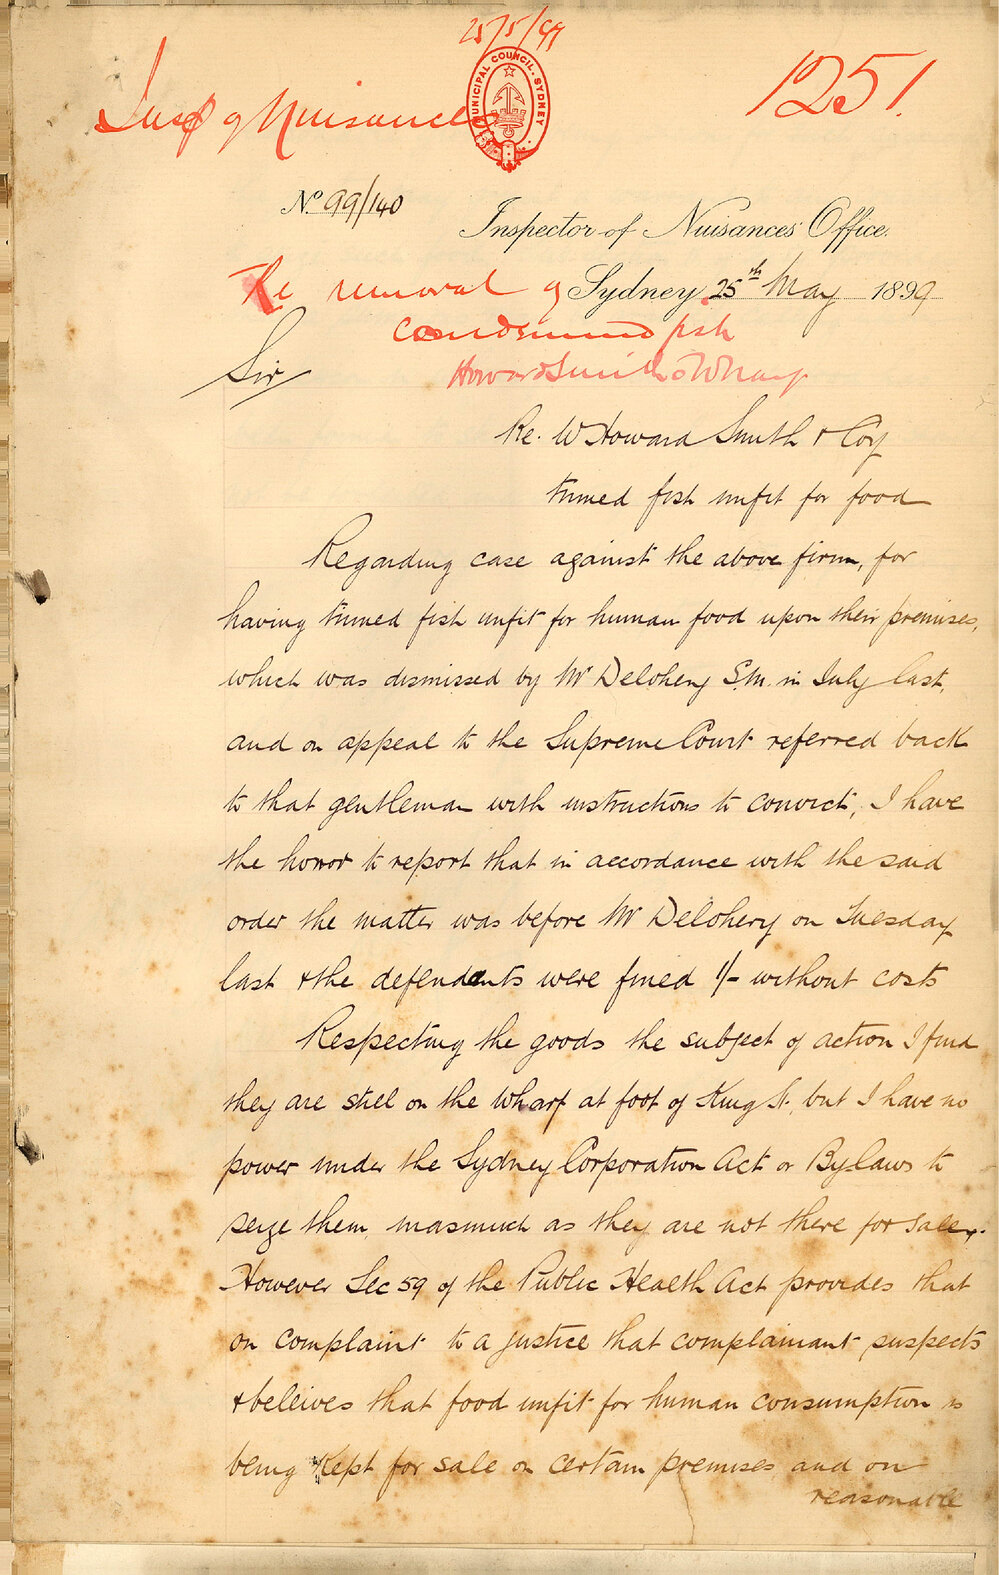 25/5/99
MUNICIPAL COUNCIL. SYDNEY
1251.
Insp of Nuisances
No 99/140
Inspector of Nuisances' Office.
Re removal of
Sydney 25th May 1899
condemned fish
Howard Smith's Wharf
Sir
Re. W Howard Smith & Coy
tinned fish unfit for food
Regarding case against the above firm, for
having tinned fish unfit for human food upon their premises,
which was dismissed by Mr Delohery S.M. in July last,
and on appeal to the Supreme Court referred back
to that gentleman with instructions to convict, I have
the honor to report that in accordance with the said
order the matter was before Mr Delohery on Tuesday
last & the defendents were fined 1/- without costs
Respecting the goods the subject of action I find
they are still on the wharf at foot of King St. but I have no
power under the Sydney Corporation Act or Bylaws to
seize them, inasmuch as they are not there for sale.
However Sec 59 of the Public Health Act provides that
on complaint to a justice that complainant suspects
& beleives that food unfit for human consumption is
being kept for sale on certain premises and on
reasonable